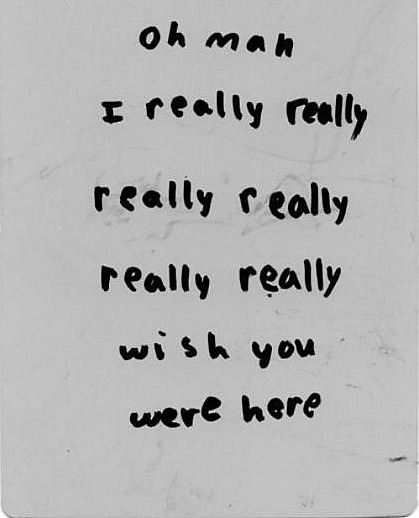 oh man
I really really
really really
really really
wish you
were here